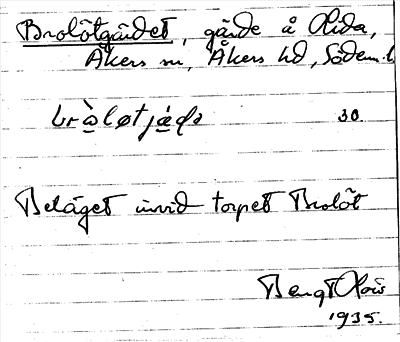 Brolötgärdet, gärde å Lida,
Åkers sn, Åkers hd, Södem.l
bràløtjæḍa 30.
Beläget invid torpet Brolöt
Bengt Olois
1935.